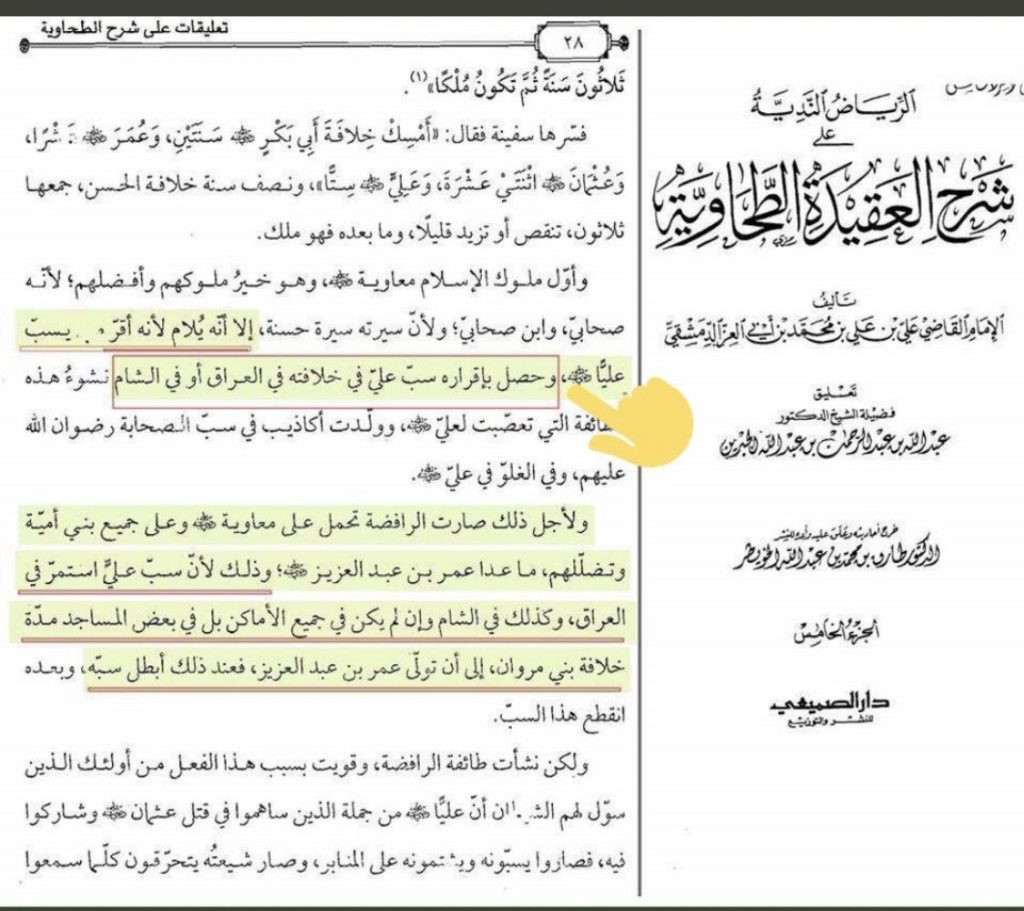 تعليقات على شرح الطحاوية
٢٨
ثَلاثُونَ سَنَةً ثُمَّ تَكُونُ مُلْكًا»(١).
فسّرها سفينة فقال: «أَمْسِكْ خِلافَةَ أَبِي بَكْرٍ ﷺ سَنَتَيْنِ، وَعُمَرَ ﷺ شْرًا،
وَعُثْمَانَ ﷺ اثْنَتَيْ عَشْرَةَ، وَعَلِيٍّ ﷺ سِتًّا»، ونصف سنة خلافة الحسن، جمعها
ثلاثون، تنقص أو تزيد قليلًا، وما بعده فهو ملك.
وأوّل ملوك الإسلام معاوية ﷺ، وهو خيرُ ملوكهم وأفضلهم؛ لأنّه
صحابيّ، وابن صحابيّ؛ ولأنّ سيرته سيرة حسنة، إلا أنّه يُلام لأنه أقرّ يسبّ
عليًّا ﷺ، وحصل بإقراره سبّ عليّ في خلافته في العراق أو في الشام نشوءُ هذه
طائفة التي تعصّبت لعليّ ﷺ، وولّدت أكاذيب في سبّ الصحابة رضوان الله
عليهم، وفي الغلوّ في عليّ ﷺ.
ولأجل ذلك صارت الرافضة تحمل على معاوية ﷺ وعلى جميع بني أميّة
وتضلّلهم، ما عدا عمر بن عبد العزيز ﷺ؛ وذلك لأنّ سبّ عليٍّ استمرّ في
العراق، وكذلك في الشام وإن لم يكن في جميع الأماكن بل في بعض المساجد مدّة
خلافة بني مروان، إلى أن تولّى عمر بن عبد العزيز، فعند ذلك أبطل سبّه، وبعده
انقطع هذا السبّ.
ولكن نشأت طائفة الرافضة، وقويت بسبب هذا الفعل من أولئك الذين
سوّل لهم أنّ عليًّا ﷺ من جملة الذين ساهموا في قتل عثمان ﷺ وشاركوا
فيه، فصاروا يسبّونه ويشتمونه على المنابر، وصار شيعتُه يتحرّقون كلّما سمعوا
الرِّيَاضُ النَّدِيَّةُ
على
شَرْحِ العَقِيدَةِ الطَّحَاوِيَّةِ
تَأليفُ
الإمَام القَاضِي عَلي بن عَلي بن مُحمَّد بن أبي العِزّ الدِّمَشقيّ
تعليق
فضيلة الشيخ الدكتور
عبد الله بن عبد الرحمن بن عبد الله الجبرين
خرج أحاديثه وعلق عليه وأعده للنشر
الدكتور طارق بن محمد بن عبد الله الخويطر
الجزء الخامس
دار الصميعي
للنشر والتوزيع